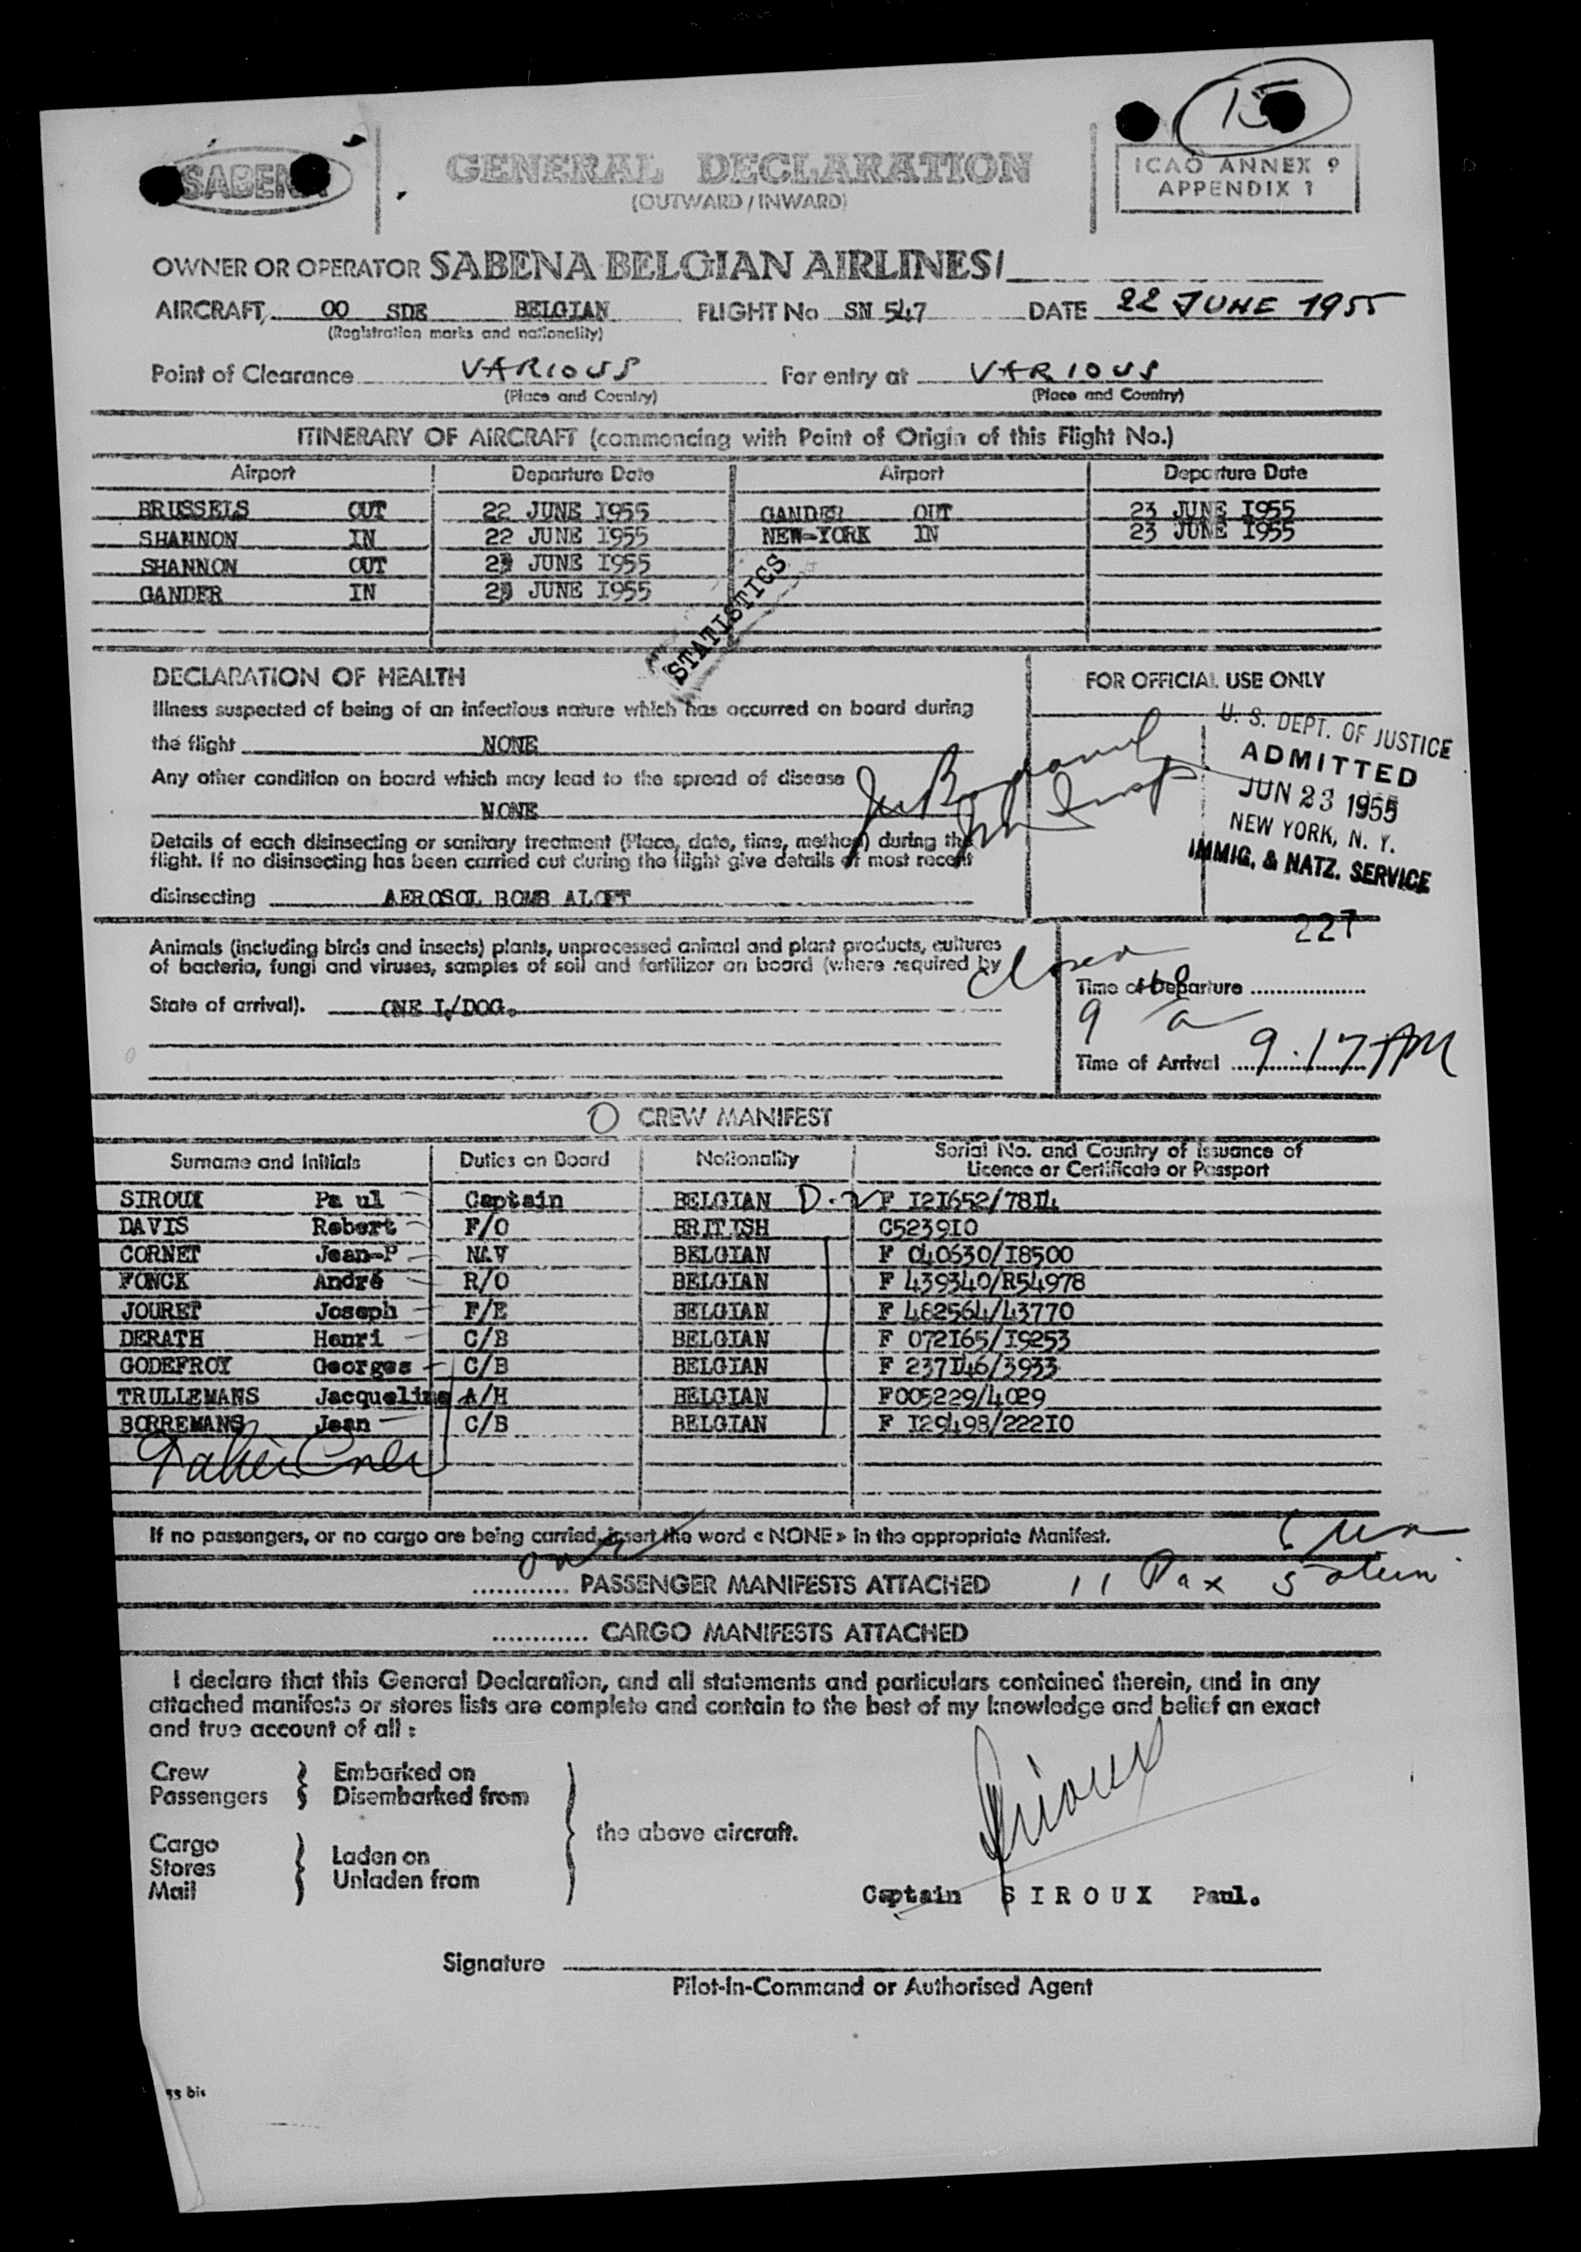 15
SABENA
GENERAL DECLARATION
(OUTWARD / INWARD)
ICAO ANNEX 9
APPENDIX 1
OWNER OR OPERATOR SABENA BELGIAN AIRLINES/
AIRCRAFT, OO SDE BELGIAN FLIGHT No SN 547 DATE 22 JUNE 1955
(Registration marks and nationality)
Point of Clearance VARIOUS For entry at VARIOUS
(Place and Country) (Place and Country)
ITINERARY OF AIRCRAFT (commencing with Point of Origin of this Flight No.)
Airport Departure Date Airport Departure Date
BRUSSELS OUT 22 JUNE 1955 GANDER OUT 23 JUNE 1955
SHANNON IN 22 JUNE 1955 NEW-YORK IN 23 JUNE 1955
SHANNON OUT JUNE 1955
GANDER IN JUNE 1955
STATISTICS
DECLARATION OF HEALTH
FOR OFFICIAL USE ONLY
Illness suspected of being of an infectious nature which has occurred on board during
the flight NONE
Any other condition on board which may lead to the spread of disease
NONE
Details of each disinsecting or sanitary treatment (Place, date, time, method) during the
flight. If no disinsecting has been carried out during the flight give details of most recent
disinsecting AEROSOL BOMB ALOFT
U. S. DEPT. OF JUSTICE
ADMITTED
JUN 23 1955
NEW YORK, N. Y.
IMMIG. & NATZ. SERVICE
227
Animals (including birds and insects) plants, unprocessed animal and plant products, cultures
of bacteria, fungi and viruses, samples of soil and fertilizer on board (where required by
State of arrival). ONE L/DOG.
Time of Departure
Time of Arrival 9.17 AM
CREW MANIFEST
Surname and Initials Duties on Board Nationality Serial No. and Country of Issuance of
Licence or Certificate or Passport
SIROUX Paul Captain BELGIAN F 121652/7814
DAVIS Robert F/O BRITISH C523910
CORNET Jean-P NAV BELGIAN F 040630/18500
FONCK André R/O BELGIAN F 439340/R54978
JOURET Joseph F/E BELGIAN F 482564/43770
DERATH Henri C/B BELGIAN F 072165/19253
GODEFROY Georges C/B BELGIAN F 237146/3933
TRULLEMANS Jacqueline A/H BELGIAN F005229/4029
BORREMANS Jean C/B BELGIAN F 129498/22210
If no passengers, or no cargo are being carried, insert the word « NONE » in the appropriate Manifest.
PASSENGER MANIFESTS ATTACHED 11 Pax
CARGO MANIFESTS ATTACHED
I declare that this General Declaration, and all statements and particulars contained therein, and in any
attached manifests or stores lists are complete and contain to the best of my knowledge and belief an exact
and true account of all :
Crew Embarked on
Passengers Disembarked from
the above aircraft.
Cargo
Stores Laden on
Mail Unladen from
Siroux
Captain SIROUX Paul.
Signature
Pilot-in-Command or Authorised Agent
55 bis